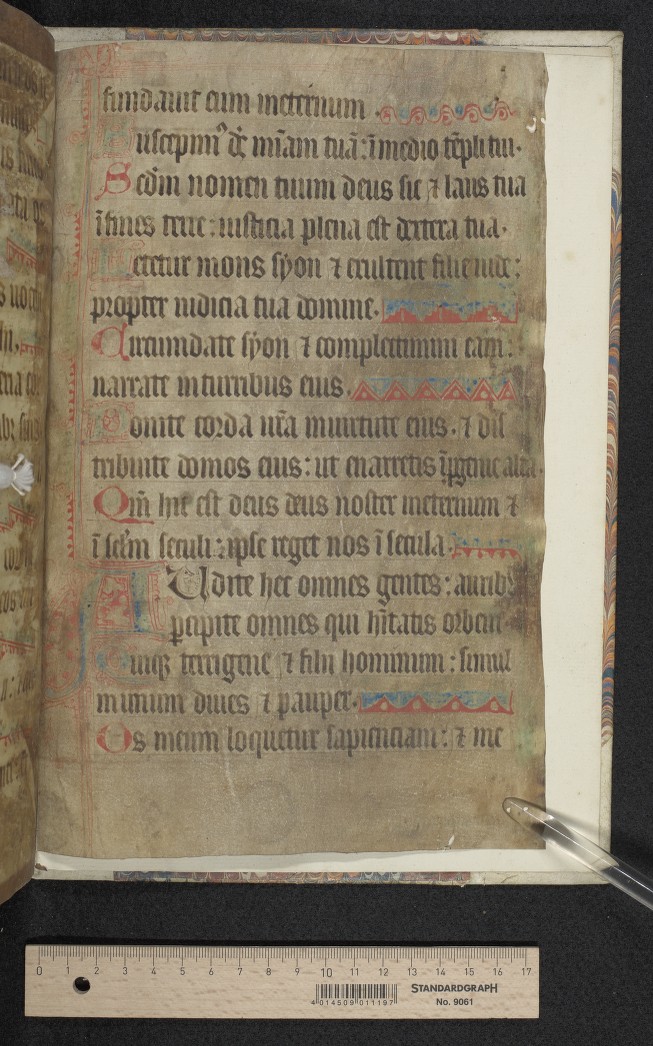 fundauit eam ineternum.
Suscepim⁹ ds̄ mīam tuā: ī medio tēpli tui.
Scdm nomen tuum deus sic ⁊ laus tua
ī fines terre: iusticia plena est dextera tua.
Letetur mons syon ⁊ exultent filie iude:
propter iudicia tua domine.
Circumdate syon ⁊ complectimini eam:
narrate in turribus eius.
Ponite corda ura muirtute eius. ⁊ dis
tribuite domos eius: ut enarretis ī
Qm̄ hic est deus deus noster ineternum ⁊
ī sclm seculi: ipse reget nos ī secula.
Audite hec omnes gentes: aurib⁹
percipite omnes qui hītatis orbem
Quiq; terrigene ⁊ filii hominum: simul
inunum diues ⁊ pauper.
Os meum loquetur sapienciam: ⁊ me
0 1 2 3 4 5 6 7 8 9 10 11 12 13 14 15 16 17
4 014509 011197
STANDARDGRAPH
No. 9061